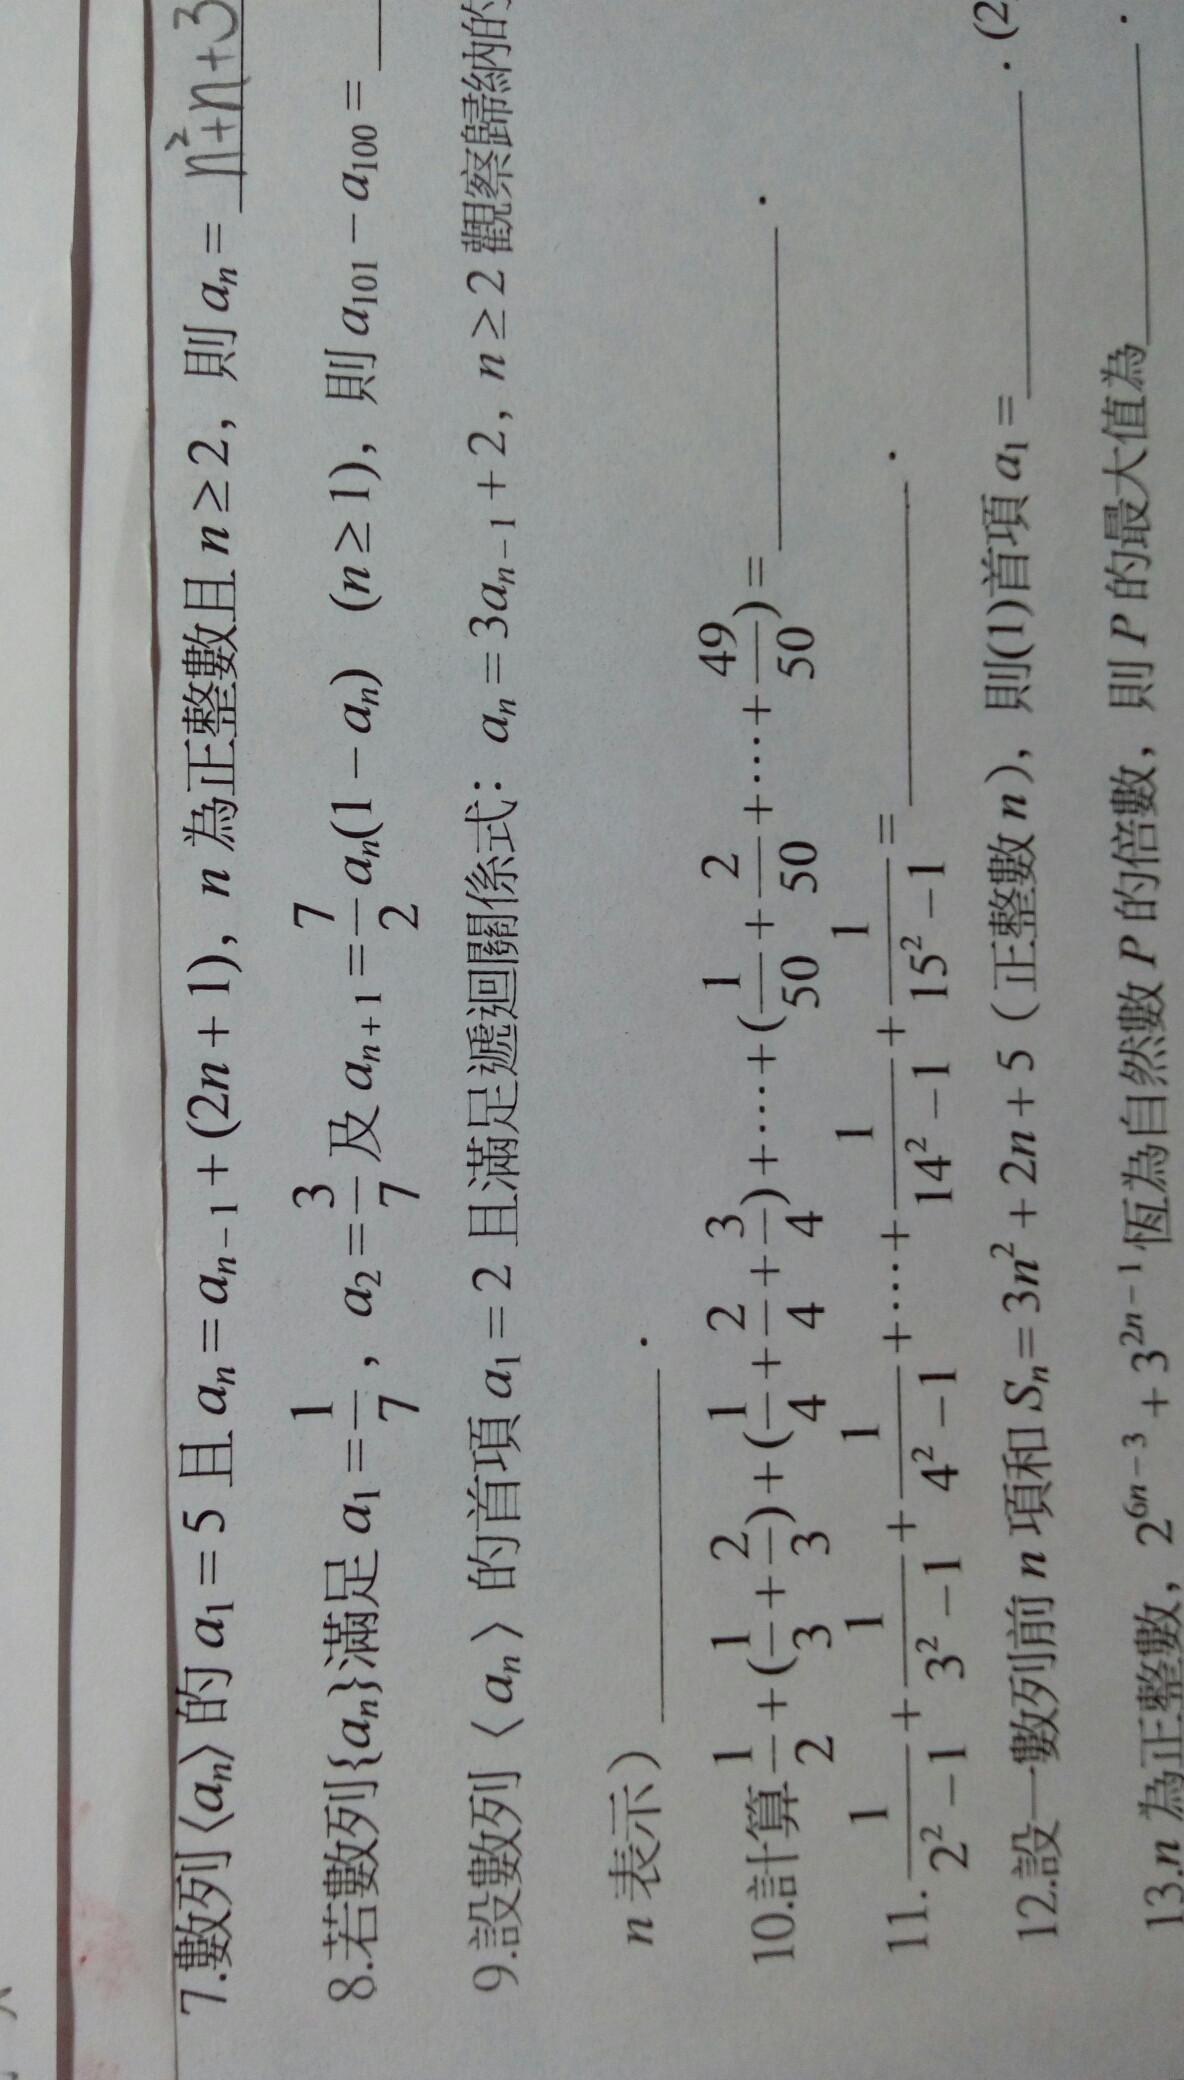 7.數列⟨aₙ⟩的 a₁=5 且 aₙ=aₙ₋₁+(2n+1)，n 為正整數且 n≥2，則 aₙ= n²+n+3
8.若數列{aₙ}滿足 a₁=1/7，a₂=3/7 及 aₙ₊₁=7/2 aₙ(1−aₙ) (n≥1)，則 a₁₀₁−a₁₀₀=
9.設數列〈aₙ〉的首項 a₁=2 且滿足遞迴關係式：aₙ=3aₙ₋₁+2，n≥2 觀察歸納的
n 表示）______．
10.計算 1/2+(1/3+2/3)+(1/4+2/4+3/4)+⋯+(1/50+2/50+⋯+49/50)=______．
11. 1/(2²−1)+1/(3²−1)+1/(4²−1)+⋯+1/(14²−1)+1/(15²−1)=______．
12.設一數列前 n 項和 Sₙ=3n²+2n+5（正整數 n），則(1)首項 a₁=______．(2
13.n 為正整數，2⁶ⁿ⁻³+3²ⁿ⁻¹恆為自然數 P 的倍數，則 P 的最大值為______．